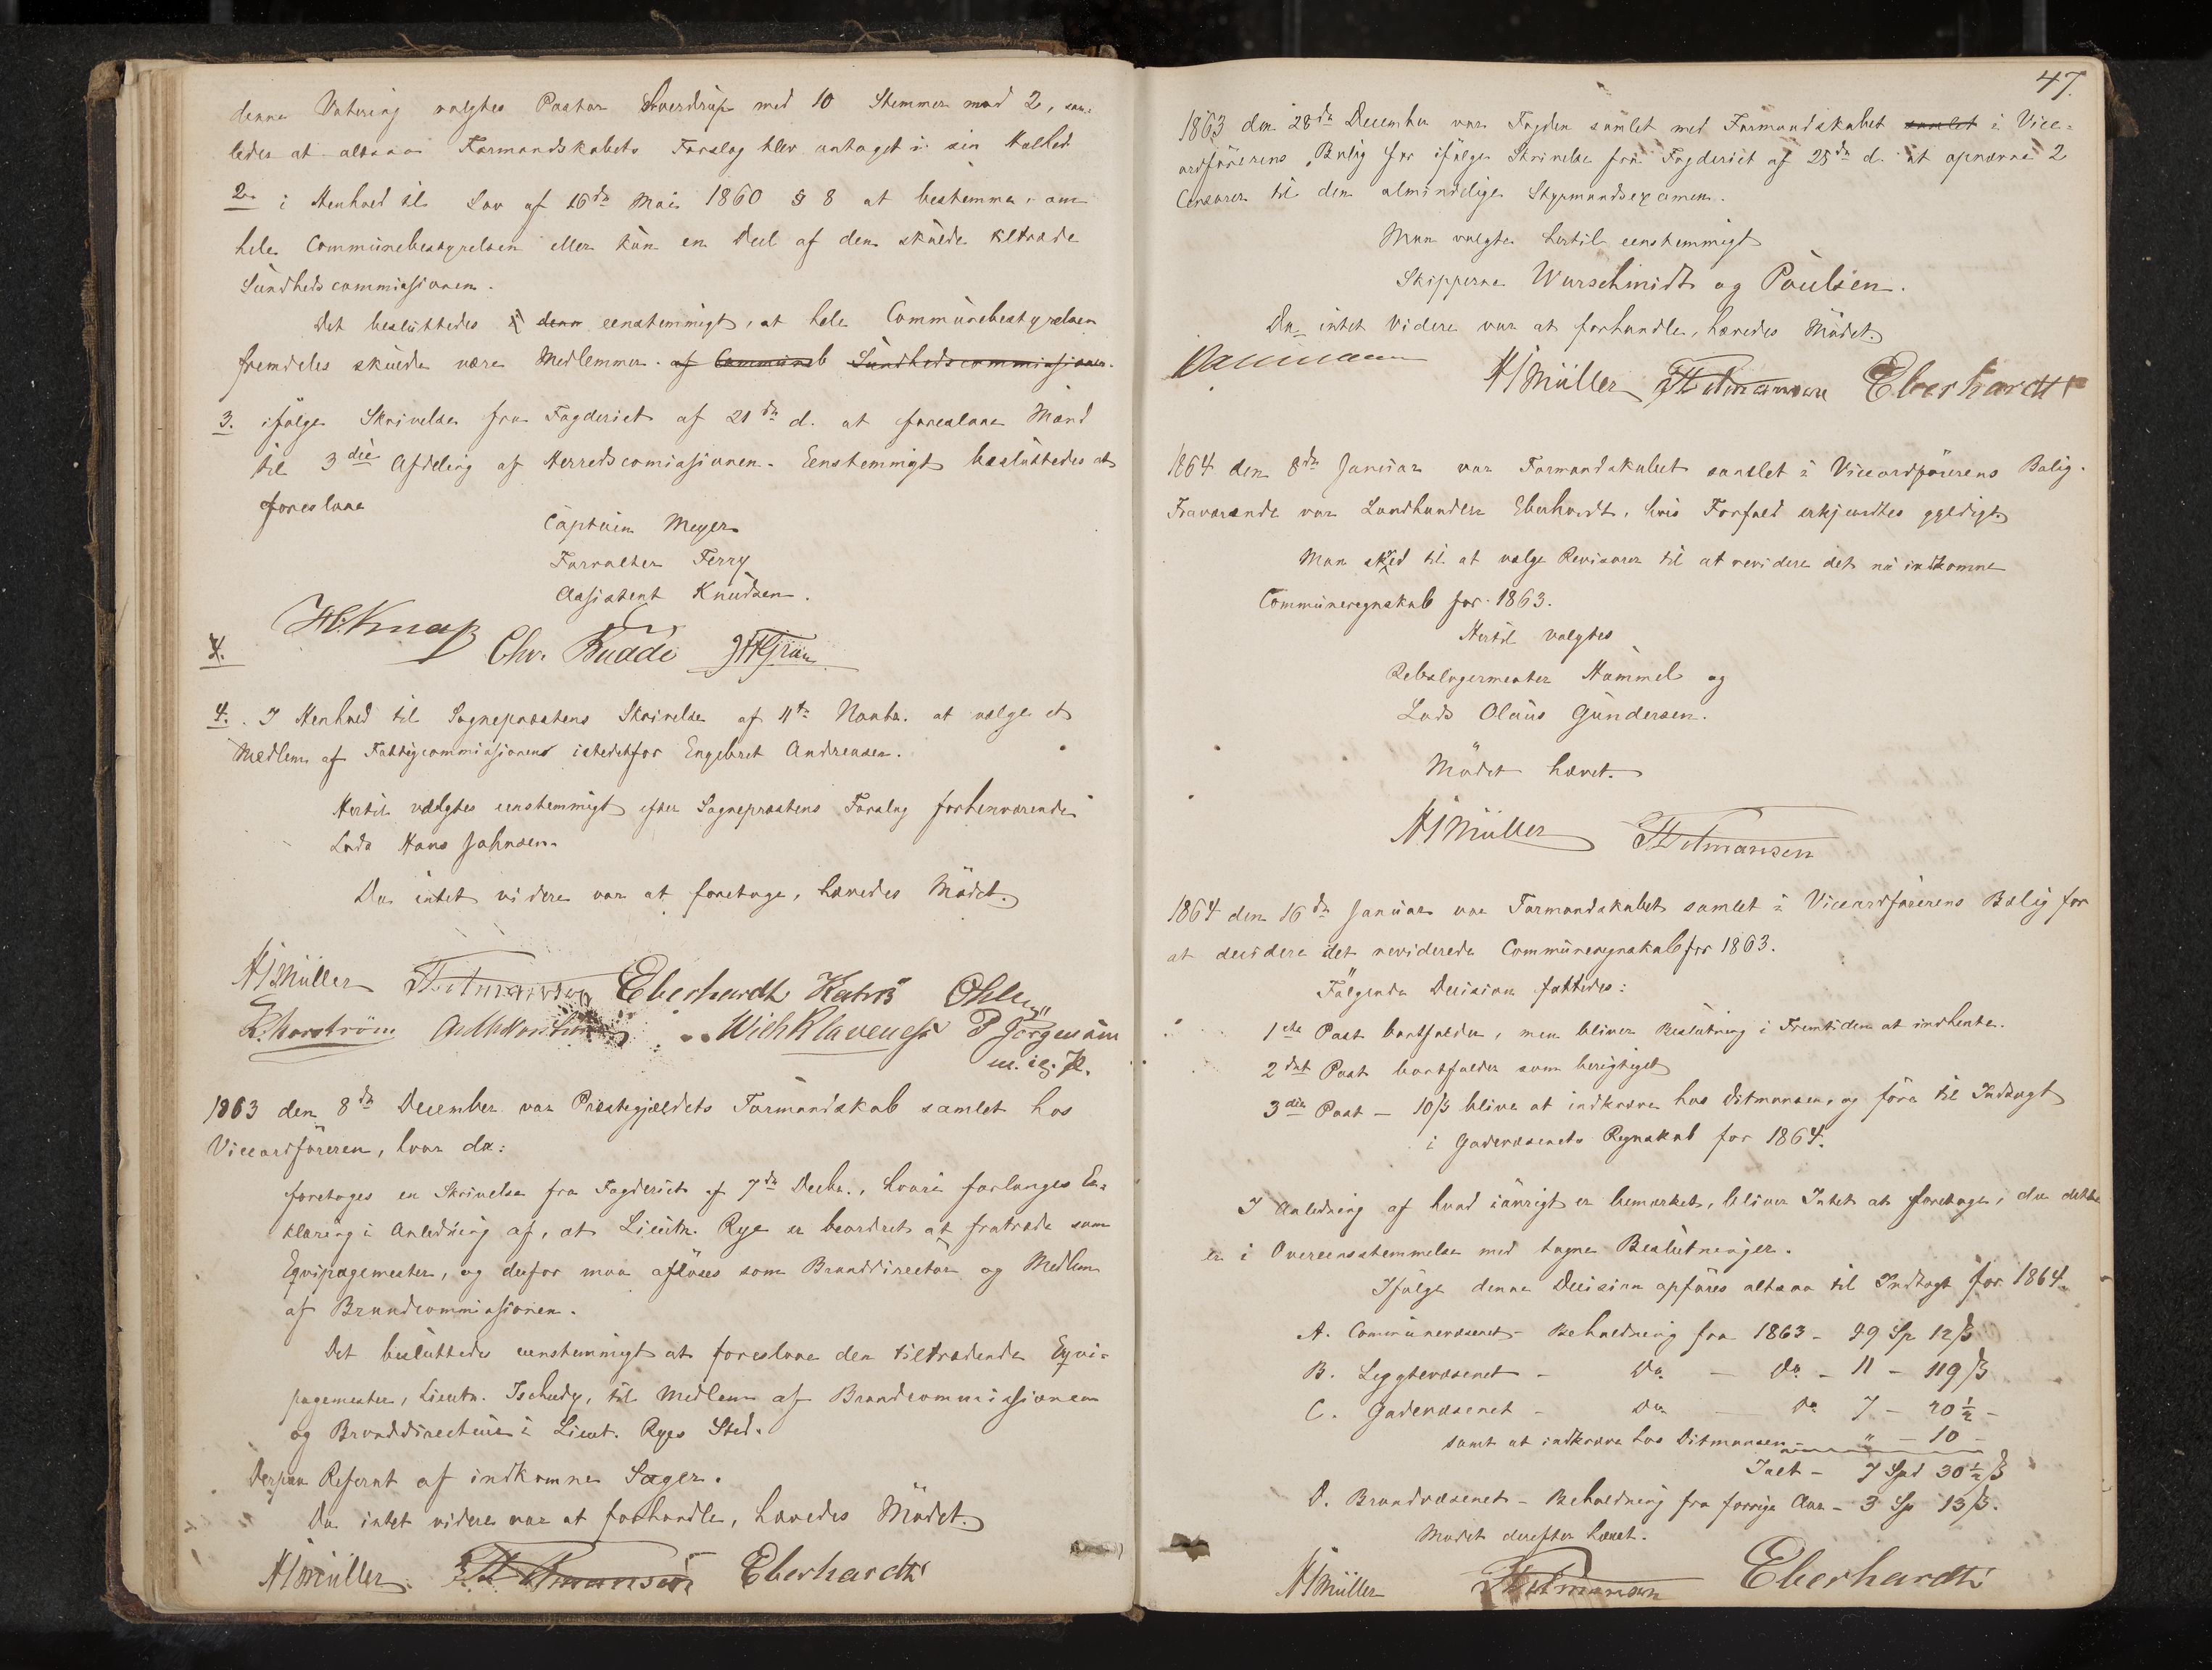 denne Votering valgtes Pastor Sverdrup med 10 Stemmer mod 2, saa-
ledes at altsaa Formandskabets Forslag blev antaget i sin Helhed
2. i Henhold til Lov af 16de Mai 1860 § 8 at bestemme, om
hele Communebestyrelsen eller kun en Deel af den skulde tiltræde
Sundhedscommissionen.
Det besluttedes eenstemmigt, at hele Communebestyrelsen
fremdeles skulde være Medlemmer af Sundhedscommissionen.
3. ifølge Skrivelse fra Fogderiet af 21de d. at foreslaae Mænd
til 3die Afdeling af Herredscomissionen. Eenstemmigt besluttedes at
foreslaae
Captain Meyer
Forvalter Ferry
Assistent Knudsen.
H. Knap Chr. Budde
4.
4. I Henhold til Sognepræstens Skrivelse af 11te Novbr. at vælge et
Medlem af Fattigcommissionens istedetfor Engebret Andreasen.
Hertil valgtes eenstemmigt efter Sognepræstens Forslag forhenværende
Lods Hans Johnsen.
Da intet videre var at foretage, hævedes Mödet.
H J Müller Ditmansen Eberhardt Ohlsen
Wilh Klaveness P Jørgensen
m. i. P.
1863 den 8de December var Præstegjældets Formandskab samlet hos
Viceordføreren, hvor da:
foretoges en Skrivelse fra Fogderiet af 7de Decbr., hvori forlanges Er-
klæring i Anledning af, at Lieutn. Rye er beordret at fratræde som
Eqvipagemester, og derfor maa aflöses som Branddirectör og Medlem
af Brandcommissionen.
Det besluttedes eenstemmigt at foreslaae den tiltrædende Eqvi-
pagemester, Lieutn. Tschudy, til Medlem af Brandcommissionen
og Branddirecteur i Lieut. Ryes Sted.
Derpaa Referat af indkomne Sager.
Da intet videre var at forhandle, hævedes Mödet.
H J Müller Ditmansen Eberhardt
47.
1863 den 28de December var Fogden samlet med Formandskabet samlet i Vice-
ordförerens Bolig for ifølge Skrivelse fra Fogderiet af 25de d. at opnævne 2
Censorer til den almindelige Styrmandsexamen.
Man valgte hertil eenstemmigt
Skipperne Wurschmidt og Poulsen.
Da intet videre var at forhandle, hævedes Mödet.
H J Müller Ditmansen Eberhardt
1864 den 8de Januar var Formandskabet samlet i Viceordförerens Bolig.
Fraværende var Landhandler Eberhardt, hvis Forfald erkjendtes gyldigt
Man skred til at vælge Revisorer til at revidere det nu indkomne
Communeregnskab for 1863.
Hertil valgtes
Rebslagermester Hammel og
Lods Olaus Gundersen.
Mödet hævet.
H J Müller Ditmansen
1864 den 16de Januar var Formandskabet samlet i Viceordförerens Bolig for
at decidere det reviderede Communeregnskab for 1863.
Følgende Decision fattedes:
1ste Post bortfalder, men bliver Beslutning i Fremtiden at indhente.
2det Post bortfalder som berigtiget
3die Post – 10 ß blive at indkræve hos Ditmansen, og före til Indtægt
i Gadevæsenets Regnskab for 1864.
I Anledning af hvad iövrigt er bemærket, bliver Intet at foretage, da dette
er i Overeensstemmelse med tagne Beslutninger.
Ifølge denne Decision opføres altsaa til Indtægt for 1864.
A. Communevæsenet – Beholdning fra 1863 – 99 Sp 12 ß
B. Løgtevæsenet – Do – Do – 11 – 119 ß
C. Gadevæsenet – Do – Do 7 – 20 ½ –
samt at indkræve hos Ditmansen – " – 10 –
Ialt – 7 Spd 30 ½ ß
D. Brandvæsenet – Beholdning fra forrige Aar – 3 Sp 13 ß.
Mødet derefter hævet.
H J Müller Ditmansen Eberhardt